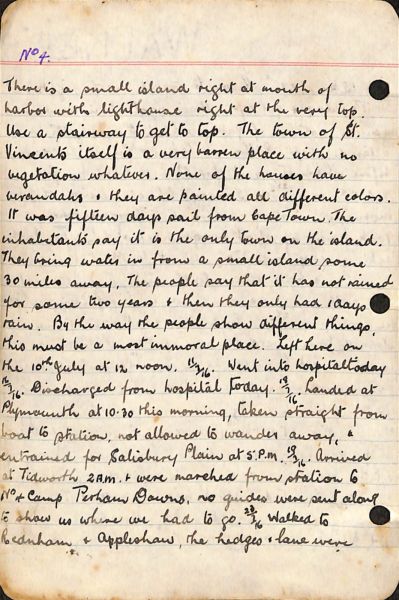 No 4.
There is a small island right at mouth of
harbor with lighthouse right at the very top.
Use a stairway to get to top. The town of St.
Vincents itself is a very barren place with no
vegetation whatever. None of the houses have
verandahs & they are painted all different colors.
It was fifteen days sail from Cape Town. The
inhabetants say it is the only town on the island.
They bring water in from a small island some
30 miles away. The people say that it has not rained
for some two years & then they only had 1 days
rain. By the way the people show different things,
this must be a most immoral place. Left here on
the 10th July at 12 noon. 11/7/16. Went into hospital today
16/7/16. Discharged from hospital today. 19/7/16. Landed at
Plymounth at 10.30 this morning, taken straight from
boat to station, not allowed to wander away, &
entrained for Salisbury Plain at 5. P.M. 19/7/16. Arrived
at Tidworth 2 A.M. & were marched from station to
No 4 Camp Perham Downs, no guides were sent along
to show us where we had to go. 23/7/16 Walked to
Rednham & Appleshaw, the hedges & lane were